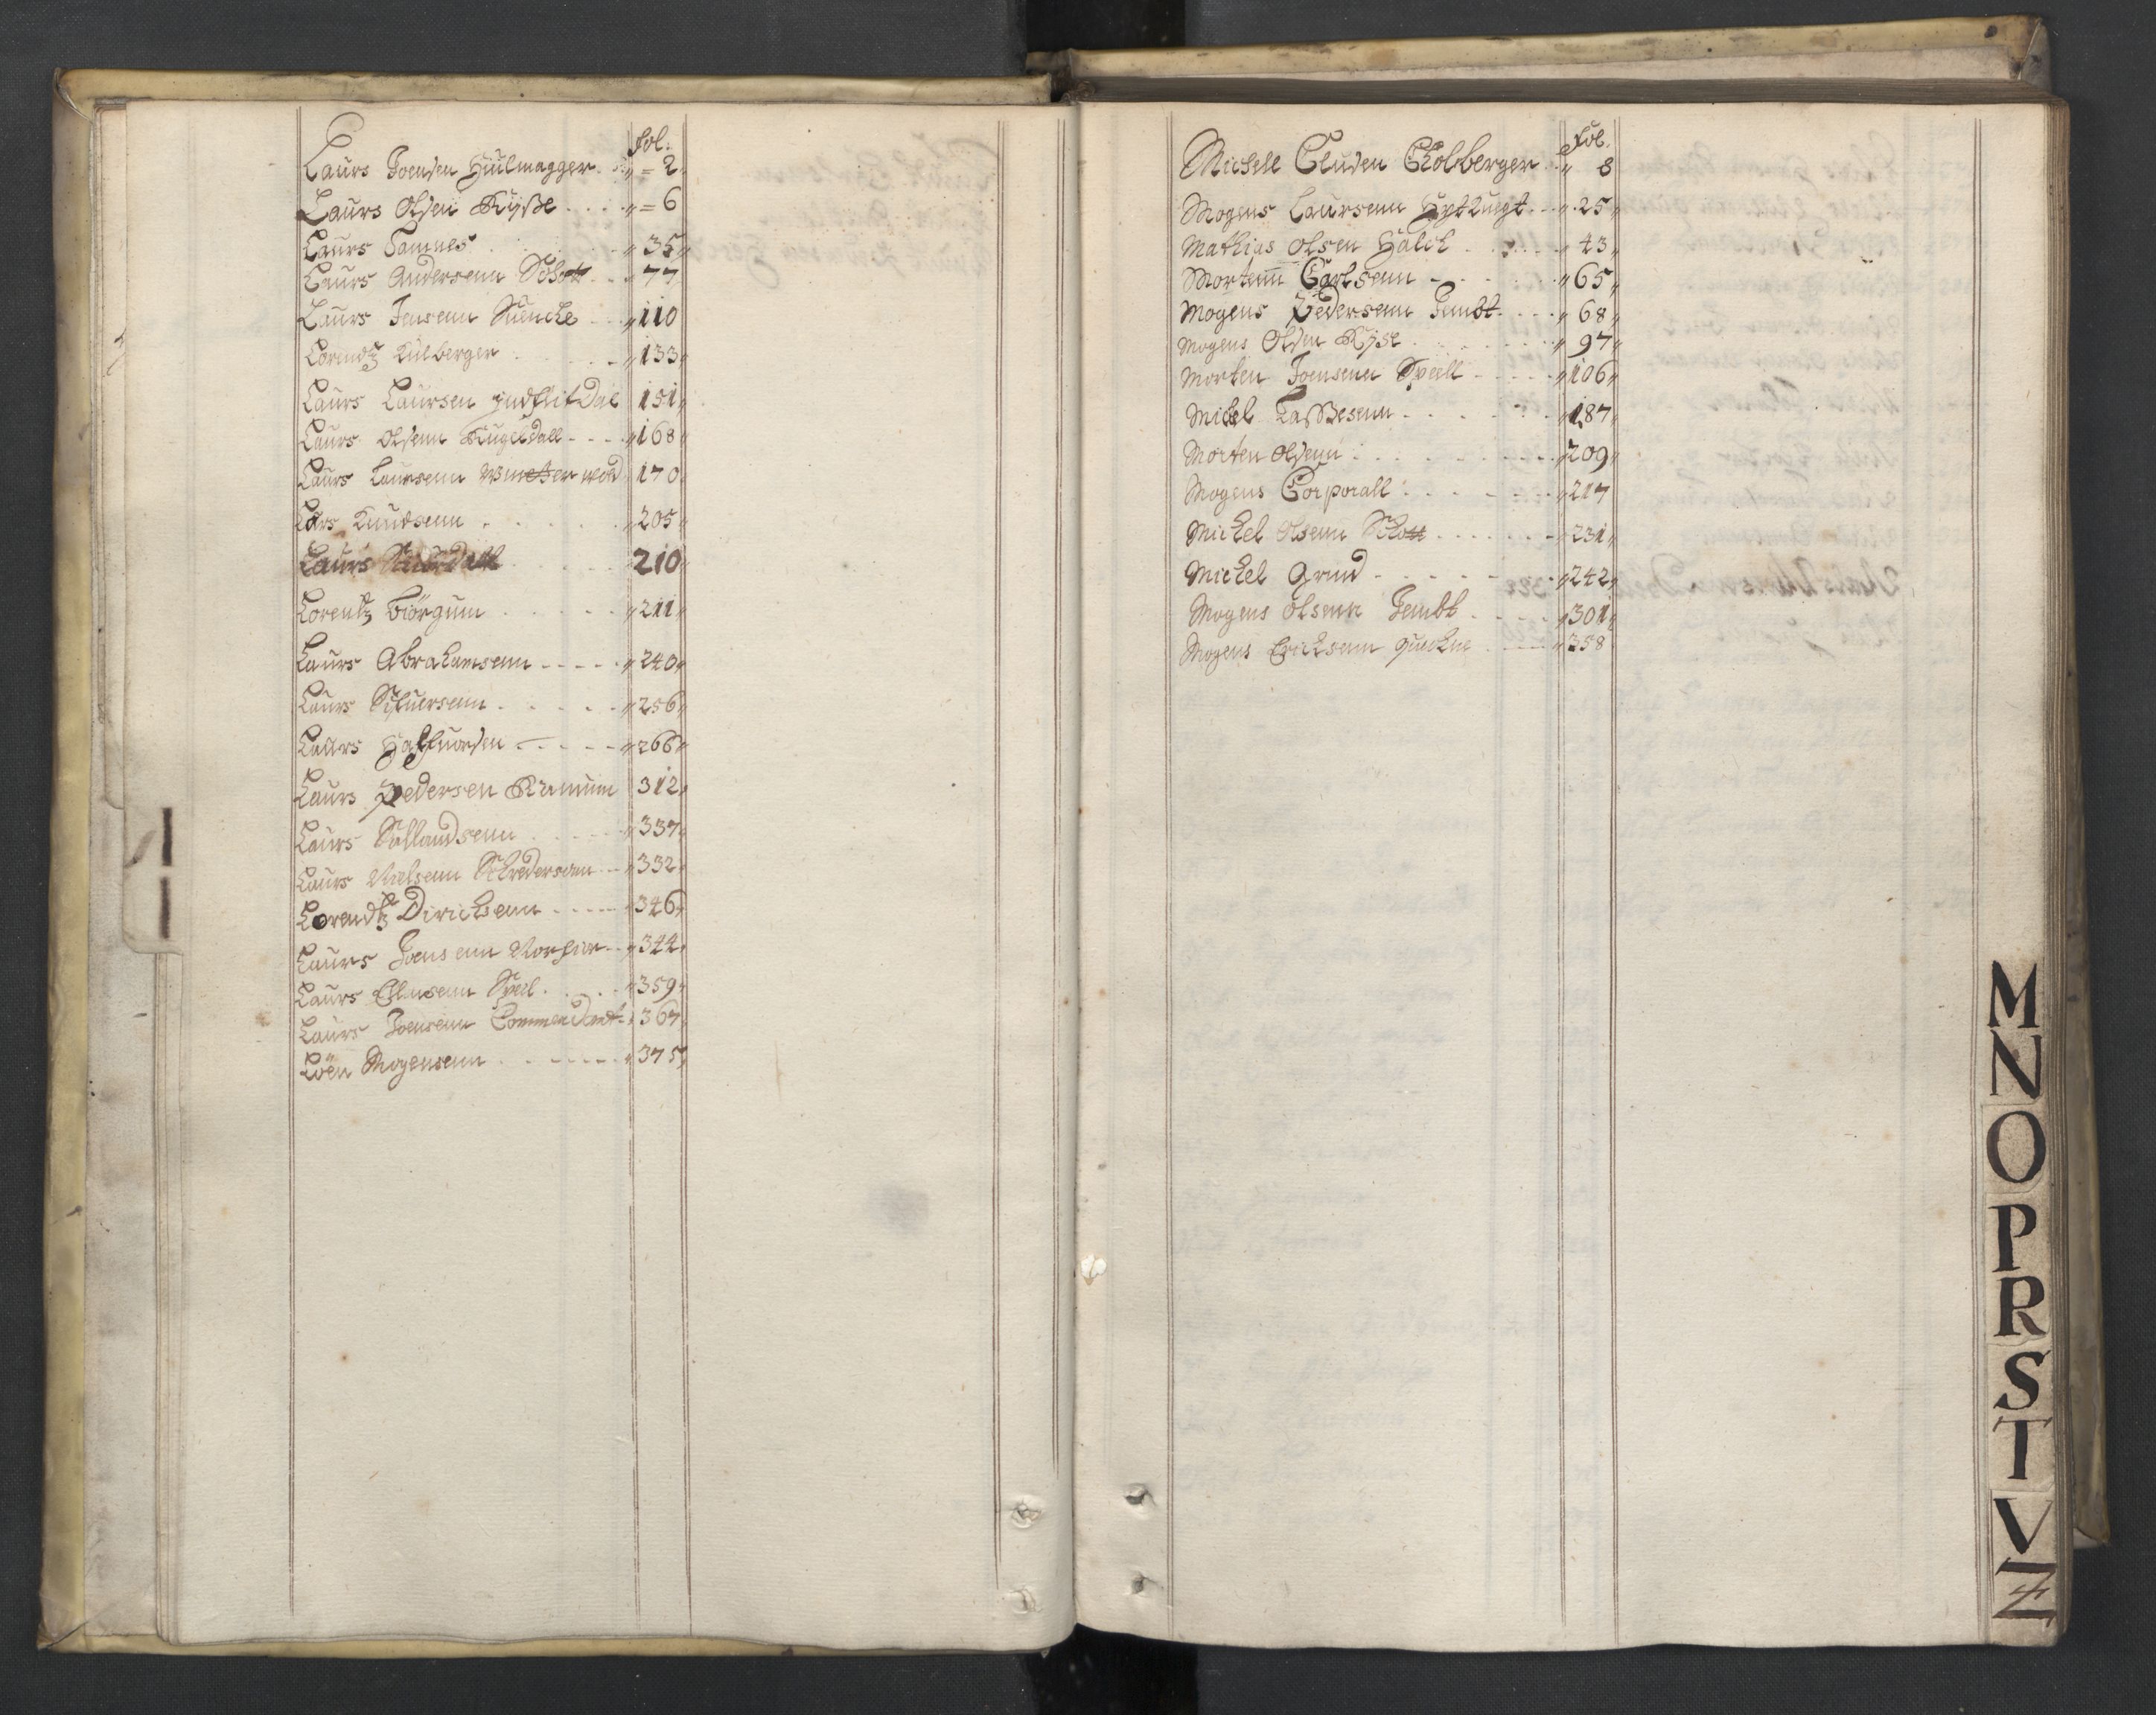 Fol.
Laurs Joensen Hiulmagger = 2
Laurs Olsen Kyße = 6
Laurs Tamnes 35
Laurs Andersenn Schott 77
Laurs Jensenn Kulberger 133
Laurs Laursen 151
Laurs Olsenn Kugeldall 168
Laurs Laursenn 170
Lars Knudsenn 205
Laurs 210
Lorentz Biörgum 211
Laurs Abrahamsenn 240
Laurs Sifuersenn 256
Laurs Halfuorsen 266
Laurs Pedersen 312
Laurs 337
Laurs Nielsenn 332
Lorendtz Dirichsenn 346
Laurs Joensenn 344
Laurs Ellensenn Speel 359
Laurs Joensenn Commendant 367
Löen Mogensenn 375
Fol.
Michell Clusen Cholberger 8
Mogens Laursenn 25
Mathias Olsen Halch 43
Mortenn Carlsenn 65
Mogens Pedersenn Jembt 68
Mogens Olsen Kyse 97
Morten Joensenn Speill 106
Mickel Laßesenn 187
Morten Olsenn 209
Mogens Corporall 217
Mickel Olsenn Schott 231
Mickel Grund 242
Mogens Olsenn Jembt 301
Mogens Ericksenn 358
M
N
O
P
R
S
T
V
Z